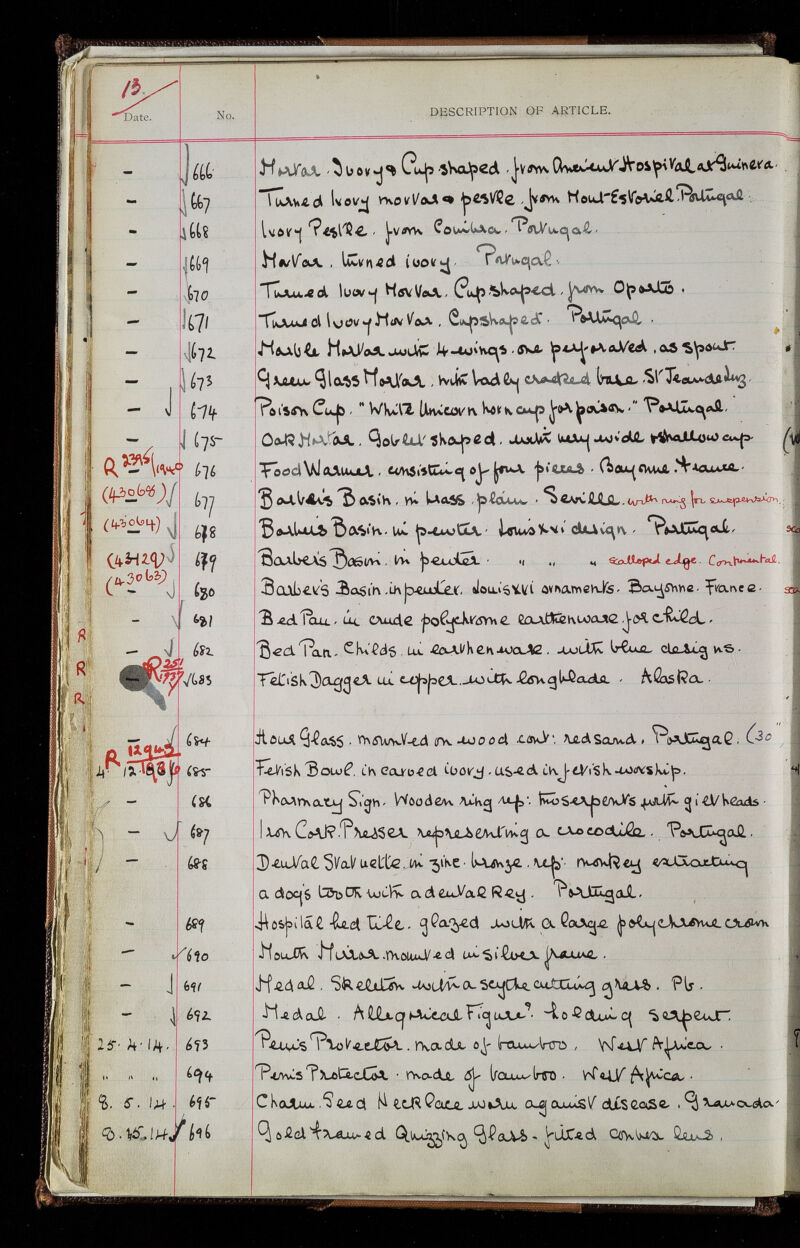 13.
Date. No. DESCRIPTION OF ARTICLE.
- 666 Mortar. Ivory Cup shaped. from Ancient Hospital at Guinera.
- 667 Turned Ivory mortar & pestle. from Mout-Estoriel. Portugal.
- 668 Ivory Pestle. from Couimbra. Portugal.
- 669 Mortar. turned ivory. Portugal.
- 670 Turned Ivory Mortar. Cup shaped. from Oporto.
- 671 Turned Ivory Mortar. Cupshaped. Portugal.
- 672 Marble Mortar with 4-wings. one perforated, as spout.
- 673 Green Glass Mortar. with badly cracked base. St Jeandeluz.
- 674 Poison Cup. "White Unicorn horn cup for poison." Portugal.
- 675 Oak Mortar. Goblet shaped. with very wide & shallow cup.
R 2395/1940 676 Food Warmer. consisting of four pieces. Bayonne. France.
(43066) 677 Barber's Basin. in brass. plain. Seville. with ring for suspension.
(43064) 678 Barbers Basin. in pewter. Louis XVI design. Portugal.
679 Barbers Basin. in pewter. " " " scalloped edge. Continental.
(43063) - 680 Barber's Basin. in pewter. Louis XVI ornaments. Bayonne. France.
- 681 Bed Pan. in crude polychrome earthenware for child.
R - 682 Bed Pan. Childs. in earthenware. with blue designs.
R R 251/1937 683 Fetish Dagger in copper. with long blade. Alaska.
R
- 684 Hour Glass. mounted on wood cont: red sand. Portugal. (30
R 685 Fetish Bowl. in carved ivory. used in fetish worship.
- 686 Pharmacy Sign. Wooden ring rep: two serpents with gilt heads.
- 687 Iron Cork Presser representing a crocodile. Portugal.
- 688 Dental Statuette. in zinc-bronze. rep: monkey extracting
a dog's tooth with a dental Key. Portugal.
- 689 Hospital Bed Tile. glazed with a large polychrome crown
- 690 Mouth Mirror. mounted in silver frame.
- 691 Medal. Skeleton with a scythe cutting grass. Pb.
- 692 Medal. Allegorical Figure. Holding serpent.
25. 4. 14. 693 Penis Protector. made of bamboo, West Africa.
" " " 694 Penis Protector. made of bamboo. West Africa.
8. 5. 14. 695 Charm. Seed Necklace worn against disease. Granada.
14. 696 Gold framed Quizzing Glass - fitted convex lens.